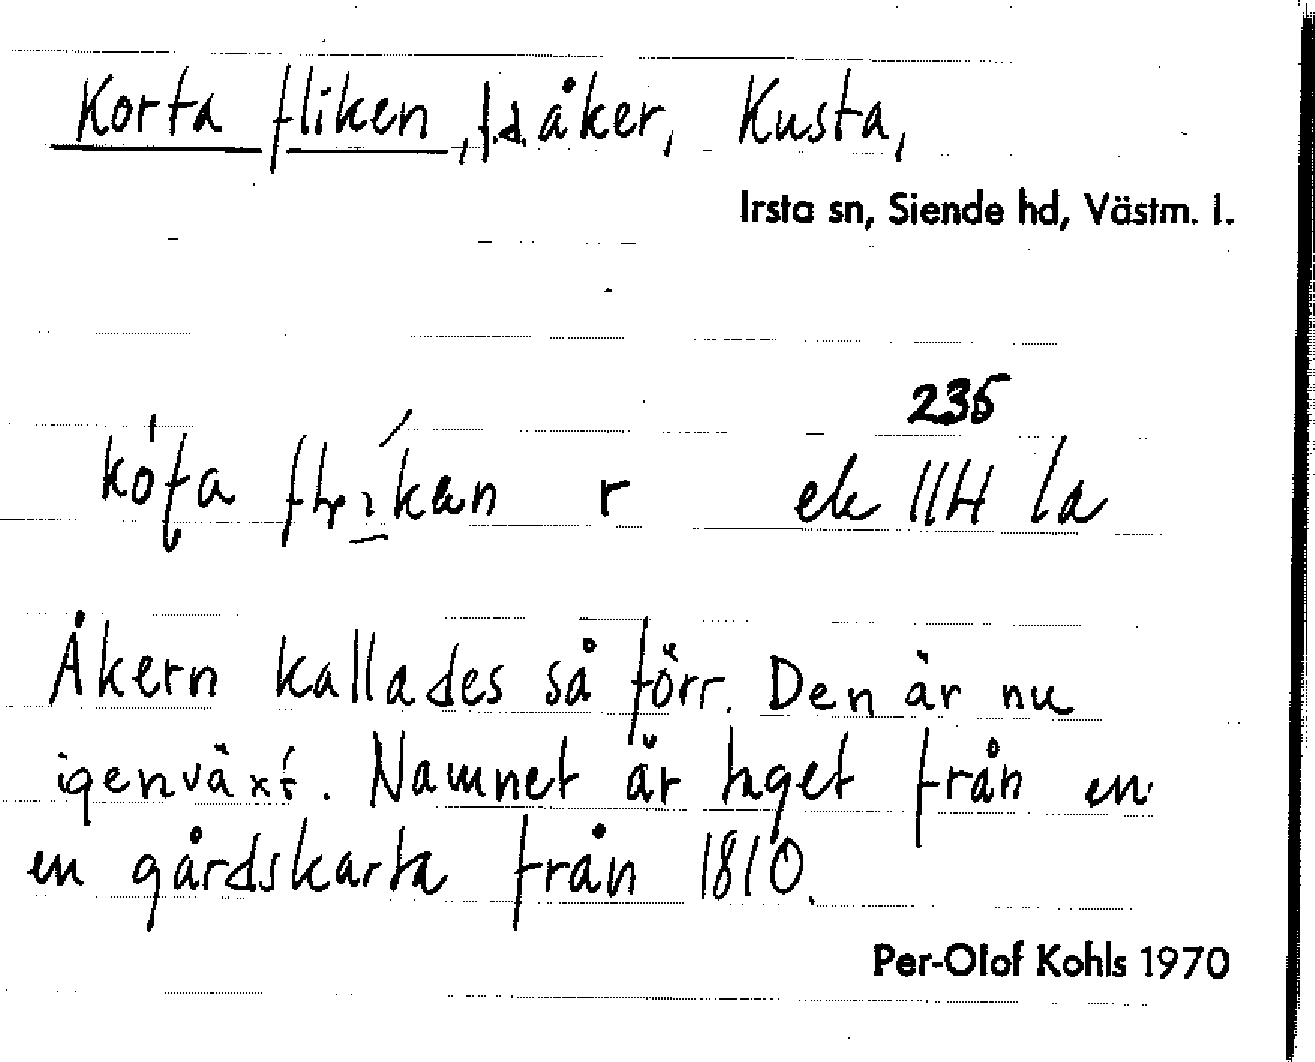 Korta fliken, f.d. åker, Kusta,
Irsta sn, Siende hd, Västm. l.
235
r ek 114 la
Åkern kallades så förr. Den är nu
igenväxt. Namnet är taget från en
en gårdskarta från 1810.
Per-Olof Kohls 1970